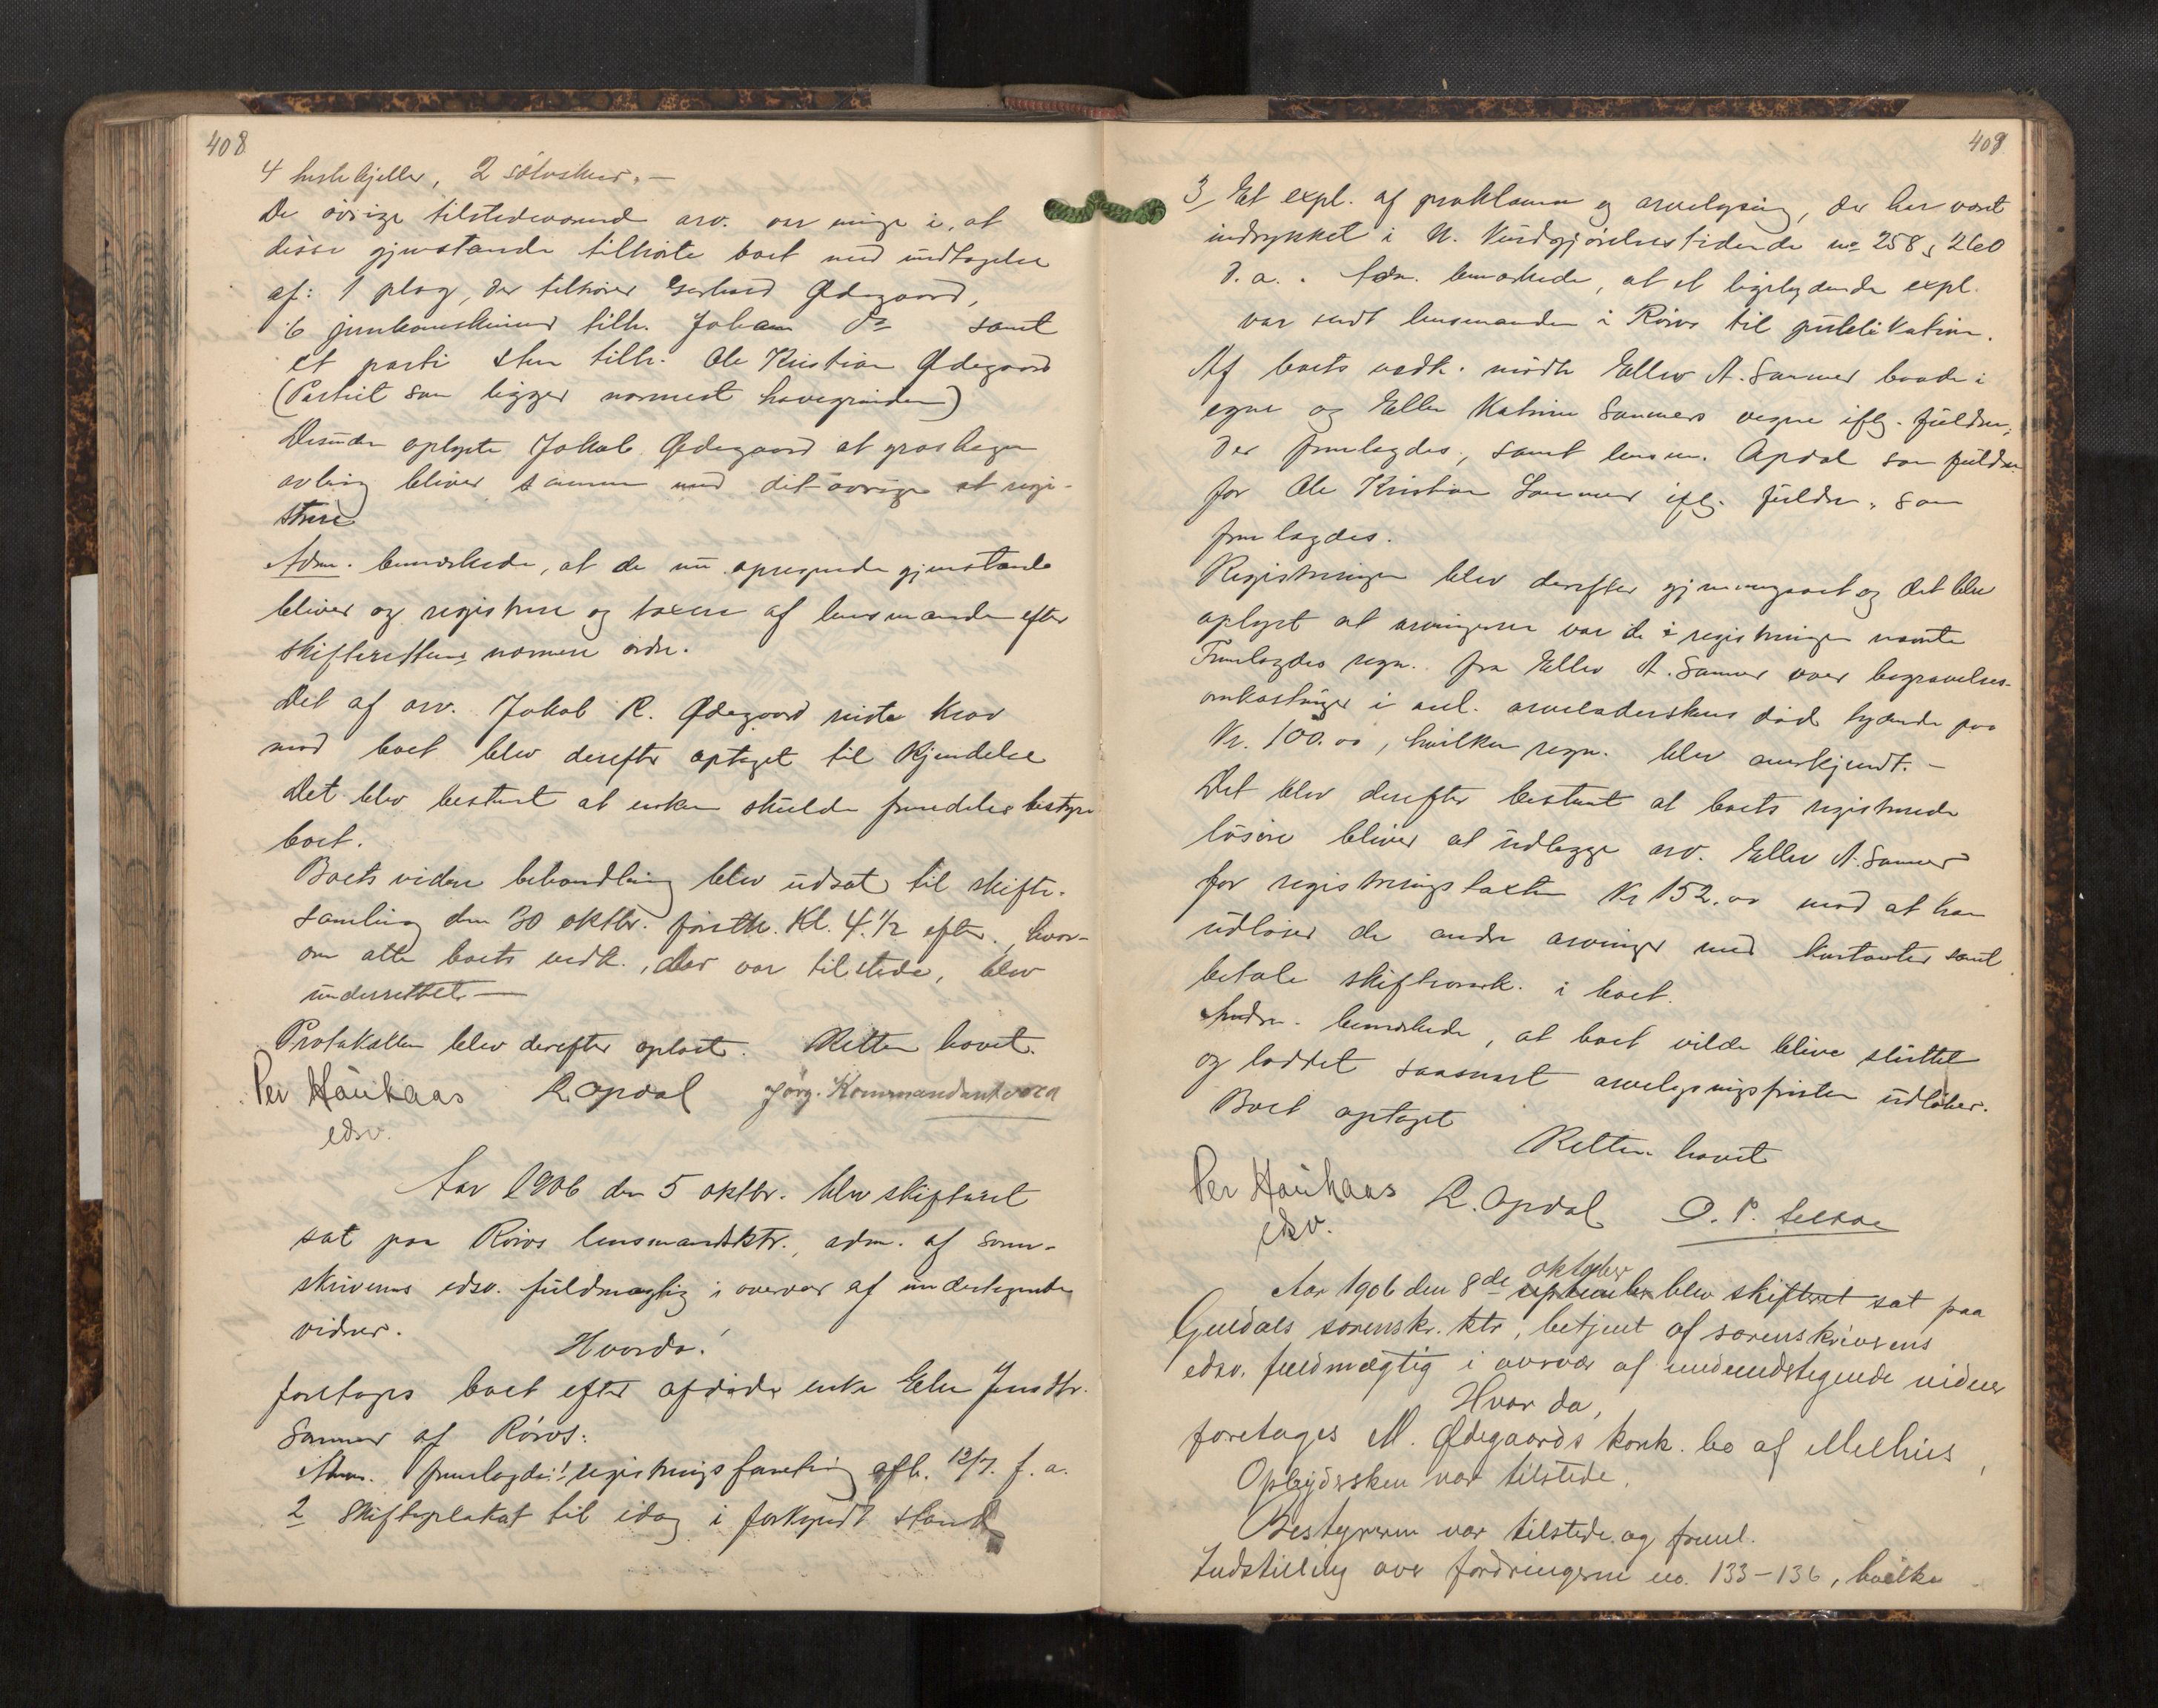 408
4 heste bjelder, 2 sølvskeer. —
De øvrige tilstedeværend arv. var enige i, at
disse gjenstande tilhørte boet med undtagelse
af: 1 plog, der tilhører Gerhard Ødegaard,
6 tilh. Johan Do samt
et parti sten tilh. Ole Kristian Ødegaard
(Partiet som ligger nærmest havegrinden)
Desuden oplyste Jakob Ødegaard at
avling bliver sammen med det øvrige at regi-
strere
Adm. bemærkede, at de nu opregnede gjenstande
bliver og registrere og taxere af lensmanden efter
skifterettens nærmere ordre.
Det af arv. Jakob R. Ødegaard reiste krav
mod boet blev derefter optaget til Kjendelse
Det blev bestemt at enken skulde fremdeles bestyre
boet.
Boets videre behandling blev udsat til skifte-
samling den 30 oktbr. førstk. Kl. 4 1/2 efterm., hvor-
om alle boets vedk., der var tilstede, blev
underrettet —
Protokollen blev derefter oplæst. Retten hævet.
Per Haukaas R Opdal Jørg. Kommandantvold
edsv.
Aar 1906 den 5 oktbr. blev skifteret
sat paa Røros lensmandsktr., adm. af soren-
skriverens edsv. fuldmægtig i overvær af undertegnede
vidner.
Hvorda!
foretages boet efter afdøde enke Elen Jensdtr.
Sanner af Røros:
Adm. fremlagde: 1, registreringsforretning afh. 12/7. f. a.
2 Skifteplakat til idag i forkyndt stand
409
3, Et expl. af proklama og arvelysing, der har været
indrykket i N. Kundgjørelsestidende no 258 & 260
d. a. . Adm. bemærkede, at et ligelydende expl.
var sendt lensmanden i Røros til publikation.
Af boets vedk. mødte Ellev A. Sanner baade i
egne og Ellen Katrine Sanners vegne iflg. fuldm.,
der fremlagdes, samt lensm. Opdal som fuldm.
for Ole Kristian Sanner iflg. fuldm., som
fremlagdes.
Registreringen blev derefter gjennemgaaet og det blev
oplyst at arvingerne var de i registreringen nævnte
Fremlagdes regn. fra Ellev A. Sanner over begravelses-
omkostninger i anl. arveladerskens død lydende paa
Kr. 100.00, hvilken regn. blev anerkjendt. —
Det blev derefter bestemt at boets registrerede
løsøre bliver at udlægge arv. Ellev A. Sanner
for registreringstaxten Kr 152.00 mod at han
udløser de andre arvinger med kontanter samt
betale skifteomk. i boet.
Adm. bemærkede, at boet vilde blive sluttet
og loddet saasnart arvelysningsfristen udløber.
Boet optaget
Retten hævet
Per Haukaas R. Opdal O. P.
edsv.
oktober
Aar 1906 den 8de september blev skifteret sat paa
Guldals sorenskr. ktr, betjent af sorenskriverens
edsv. fuldmægtig i overvær af undertegnede vidner
Hvor da,
foretages M. Ødegaards konk. bo af Melhus,
Opbydersken var tilstede.
Bestyreren var tilstede og freml.
Indstilling over fordringerne no. 133-136, hvilke